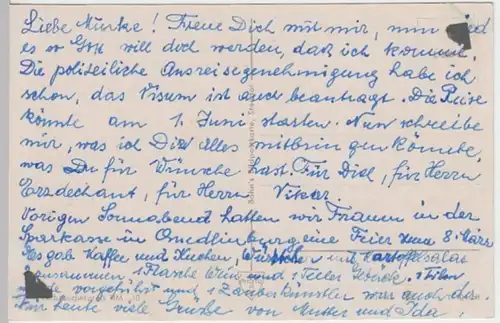 Liebe Mutke! Freue Dich mit mir, nun
es so Gott will doch werden, daß ich komme.
Die polizeiliche Ausreisegenehmigung habe ich
schon, das Visum ist auch beantragt. Die Reise
könnte am 1. Juni starten. Nun schreibe
mir, was ich Dir alles mitbringen könnte,
was Du für Wünsche hast. Für Dich, für Herrn
Erzdechant, für Herrn Vikar.
Vorigen Sonnabend hatten wir Frauen in der
Sparkasse in Quedlinburg eine Feier zum 8. März
Es gab Kaffee und Kuchen, Würstchen mit Kartoffelsalat
zusammen 1 Flasche Wein und 1 Teller Gebäck. 1 Film
wurde vorgeführt und 1 Zauberkünstler war auch da.
Für heute viele Grüße von Mutter und Ida.